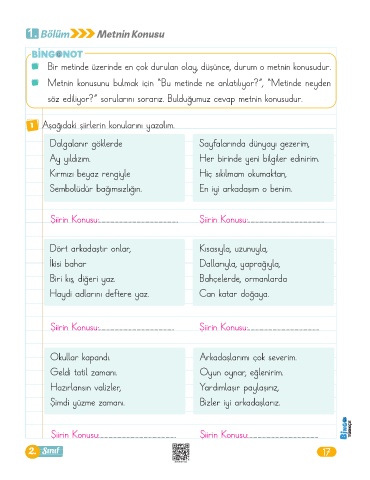 1. Bölüm Metnin Konusu
BİNGONOT
Bir metinde üzerinde en çok durulan olay, düşünce, durum o metnin konusudur.
Metnin konusunu bulmak için "Bu metinde ne anlatılıyor?", "Metinde neyden
söz ediliyor?" sorularını sorarız. Bulduğumuz cevap metnin konusudur.
1 Aşağıdaki şiirlerin konularını yazalım.
Dalgalanır göklerde
Ay yıldızım.
Kırmızı beyaz rengiyle
Sembolüdür bağımsızlığın.
Şiirin Konusu:
Sayfalarında dünyayı gezerim,
Her birinde yeni bilgiler edinirim.
Hiç sıkılmam okumaktan,
En iyi arkadaşım o benim.
Şiirin Konusu:
Dört arkadaştır onlar,
İkisi bahar
Biri kış, diğeri yaz.
Haydi adlarını deftere yaz.
Şiirin Konusu:
Kısasıyla, uzunuyla,
Dallarıyla, yaprağıyla,
Bahçelerde, ormanlarda
Can katar doğaya.
Şiirin Konusu:
Okullar kapandı.
Geldi tatil zamanı.
Hazırlansın valizler,
Şimdi yüzme zamanı.
Şiirin Konusu:
Arkadaşlarımı çok severim.
Oyun oynar, eğlenirim.
Yardımlaşır paylaşırız,
Bizler iyi arkadaşlarız.
Şiirin Konusu:
BİNGO
TÜRKÇE
2. Sınıf
17